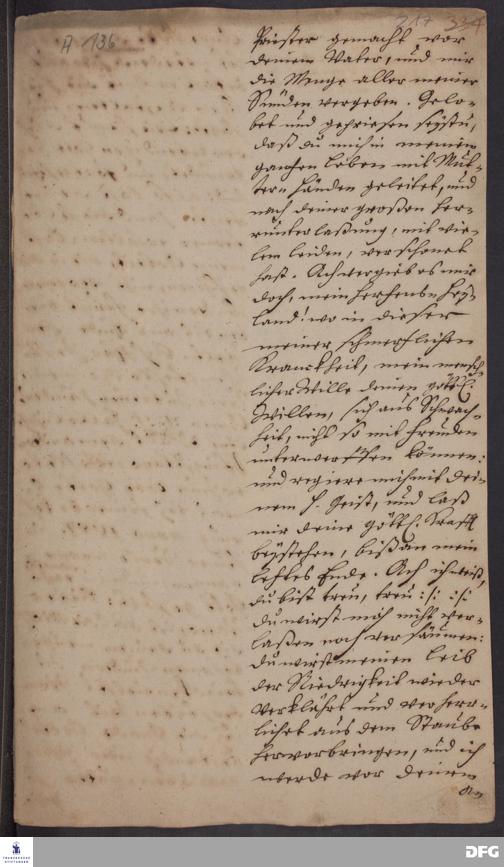 A 136
217 334
Priester gemacht vor
deinem Vater, und mir
die Menge aller meiner
Sünden vergeben. Gelo-
bet und gepriesen seystu,
daß du mich in meinem
gantzen Leben mit Mut-
tern Händen geleitet, und
nach deiner großen Her-
runterlaßung, mit vie-
lem leiden, verschonet
hast. Ach vergieb es mir
doch, mein Hertzens Hey-
land! wo in dieser
meiner schmertzlichen
Kranckheit, mein mensch-
licher Wille deinen göttl.
Willen, sich aus Schwach-
heit, nicht so mit Freuden
unterwerffen können:
und regiere mich mit dei-
nem H. Geist, und laß
mir deine göttl. Krafft
beystehen, biß an mein
letztes Ende. Ach ich weiß,
du bist treu, treu :/: :/:
du wirst mich nicht ver-
laßen noch versäumen:
du wirst meinen Leib
der Niedrigkeit wieder
verklährt und verherr-
lichet aus dem Staube
hervorbringen, und ich
werde vor deinem
FRANCKESCHE
STIFTUNGEN
DFG